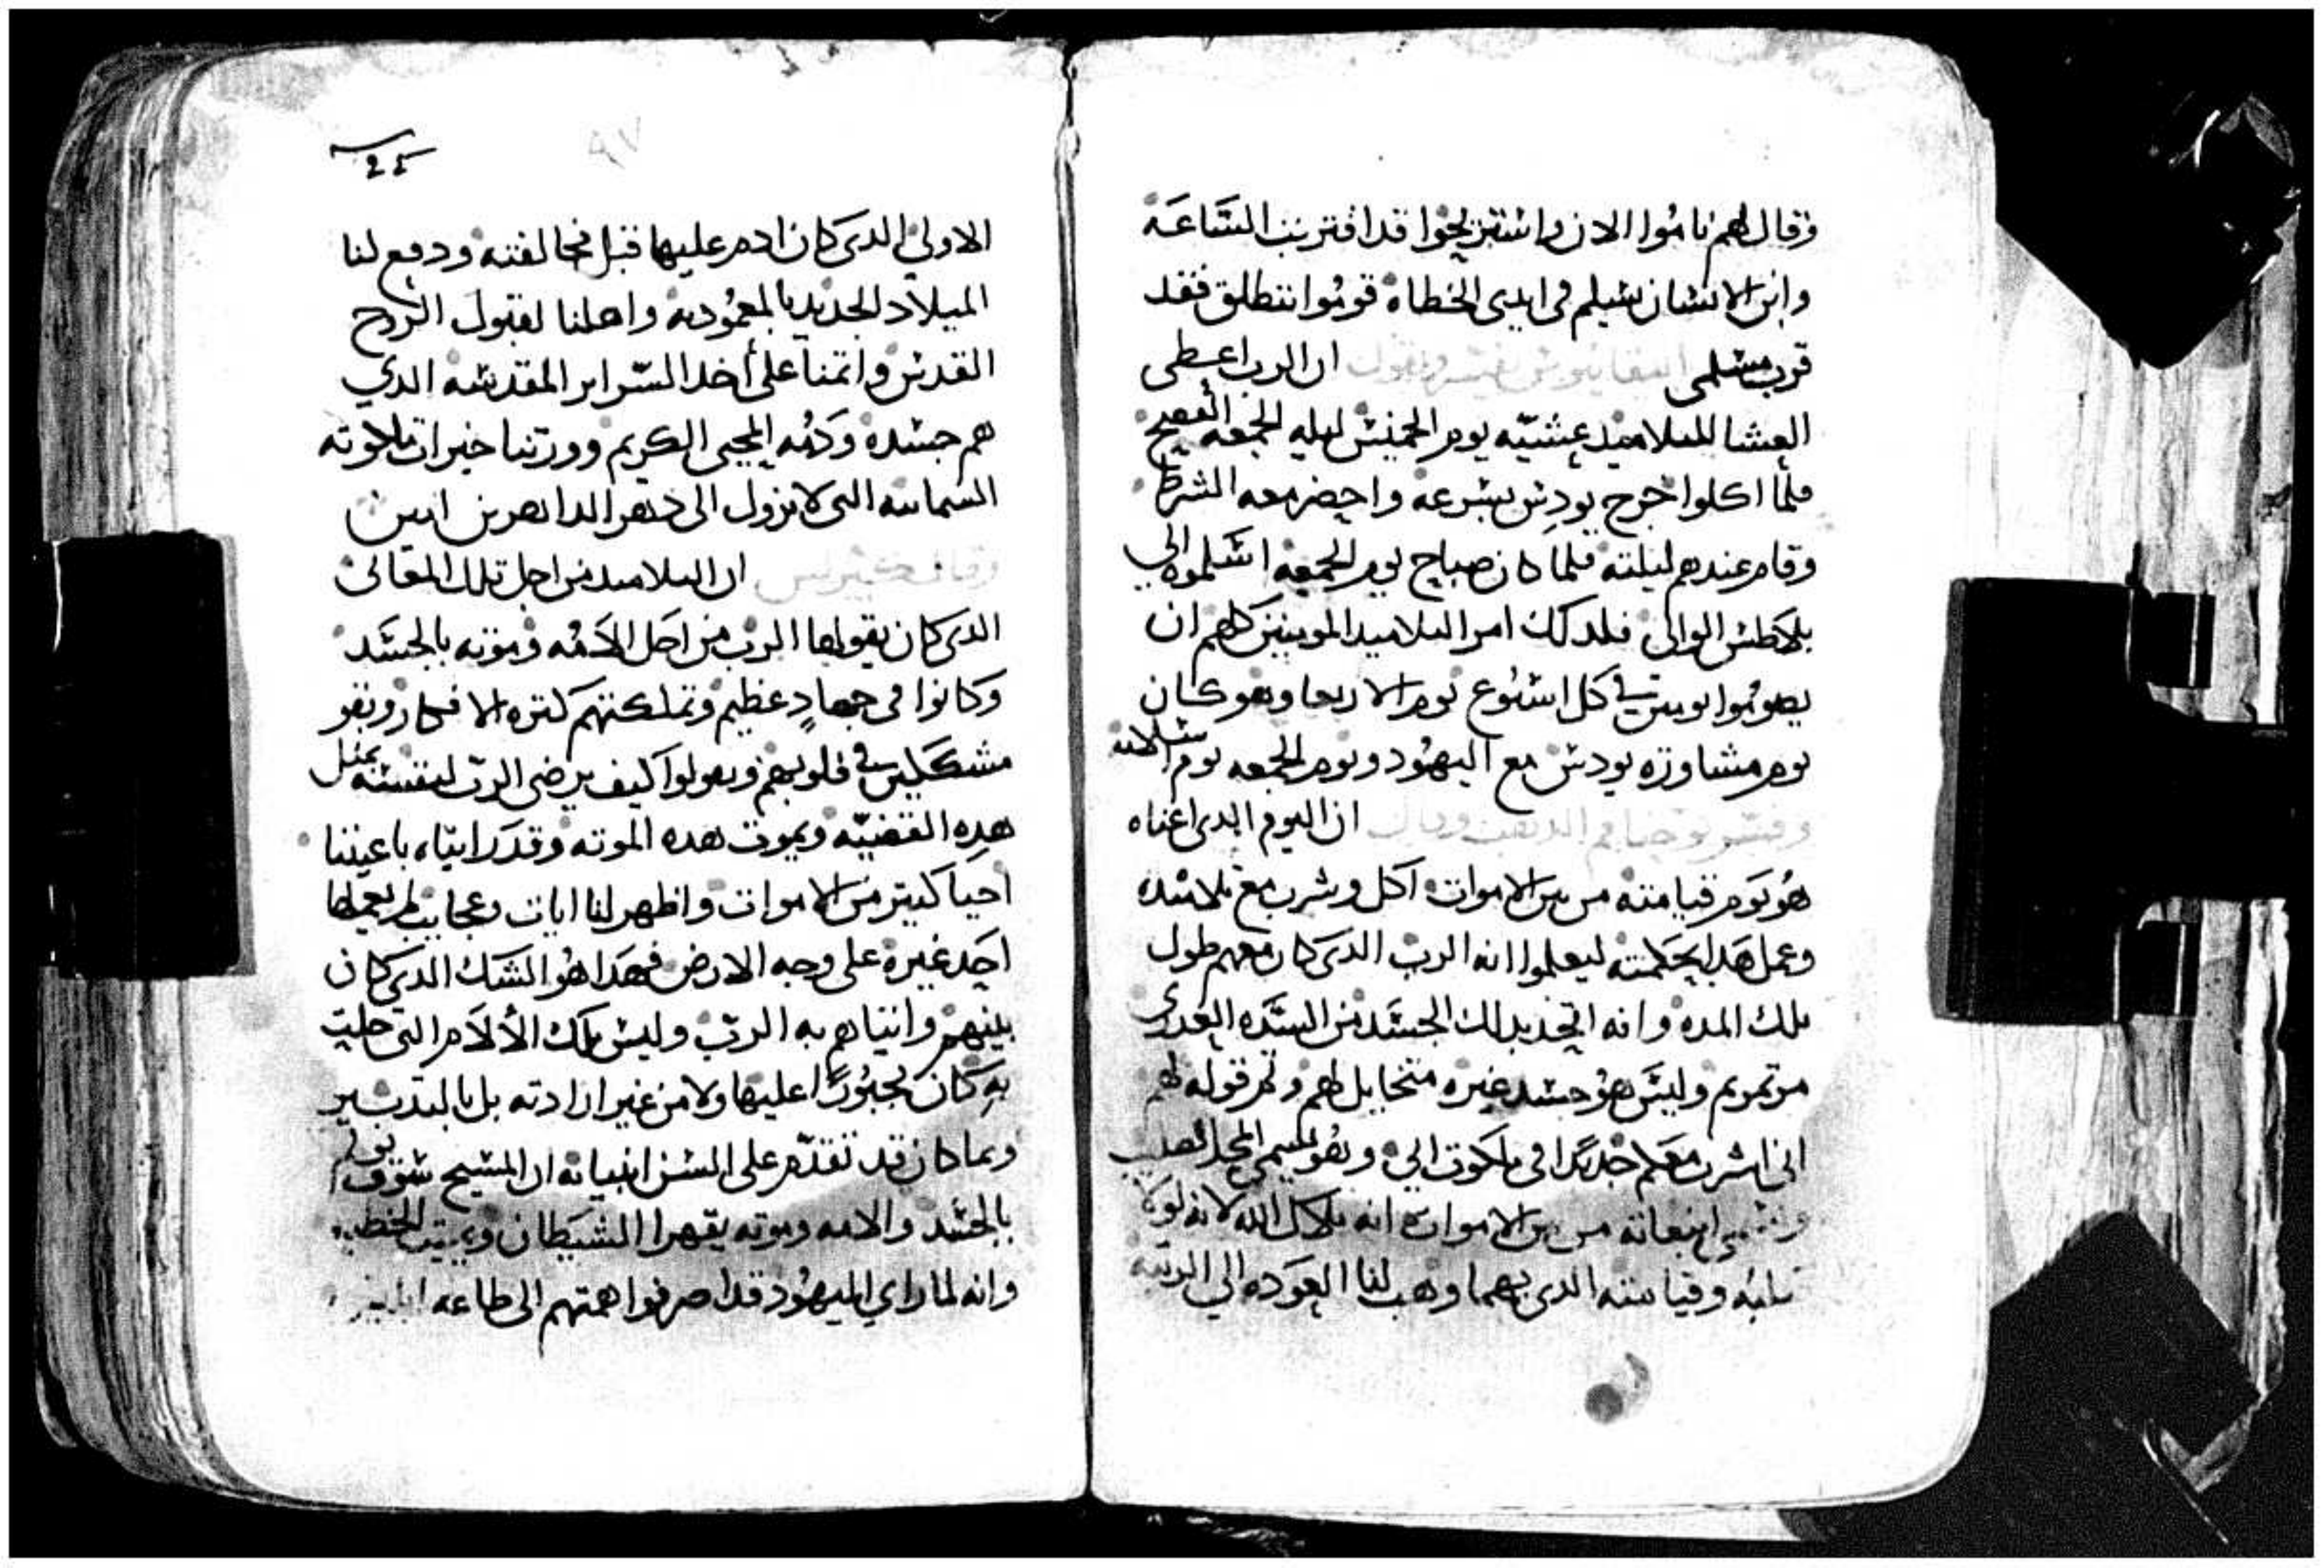 وقال لهم ناموا الان واستريحوا قد اقتربت الساعة
وابن الانسان يسلم في ايدى الخطاة قوموا ننطلق فقد
قرب مسلمى ابيفانيوس يفسر ويقول ان الرب اعطى
العشا للتلاميد عشيّه يوم الخميس ليله الجمعه الفصح
فلمّا اكلوا خرج يودس بسرعة واحضر معه الشرط
وقام عندهم ليلته فلما كان صباح يوم الجمعه اسلموه الي
بلاطس الوالي فلدلك امر التلاميد المومنين كلهم ان
يصوموا يومين في كل اسبوع يوم الاربعا وهو كان
يوم مشاورة يودس مع اليهود ويوم الجمعه يوم
وفسر يوحنا فم الدهب وقال ان اليوم الدى اعناه
هو يوم قيامته من بين الاموات اكل وشرب مع تلاميده
وعمل هدا بحكمته ليعلموا انه الرب الدى كان معهم طول
تلك المدة وانه اتخد بدلك الجسد من السيّده العدرى
مرتمريم وليس هو جسد غيره متخايل لهم وثم قوله لهم
انى اشرب معكم جديدًا في ملكوت ابي وهو يسمي المجد الصليب
انبعاثه من بين الاموات انه ملاك الله لانه لولا
تالمه وقيامته الدى بهما وهب لنا العوده الي الرتبه
٩٧
الاولي الدى كان ادم عليها قبل مخالفته ودفع لنا
الميلاد الجديد بالمعموديه واهلنا لقبول الروح
القدس واتمنا على أخد السّراير المقدسه الدي
هم جسده ودمه المحيى الكريم وورتنا خيرات ملكوته
السمائيه التى لا تزول الى دهر الداهرين امين
وقال كيرلس ان التلاميد من اجل تلك المقالى
الدى كان يقولها الرب من اجل الامه وموته بالجسد
وكانوا في جهادٍ عظيم وتملكتهم كترة الافكار وبقو
مشككين في قلوبهم ويقولوا كيف يرضى الربّ لنفسه بمثل
هده القضيّه ويموت هده الموته وقد رايناه باعيننا
احيا كتير من الاموات واظهر لنا ايات وعجايب لم يعملها
احد غيره على وجه الارض فهدا هو الشك الدى كان
بينهم وانباهم به الربّ وليس تلك الألام التى حلت
به كان مجبورًا عليها ولا من غير ارادته بل بالتدبير
وبما كان قد تقدّم على السن انبيائه ان المسيح سوف يولم
بالجسد والامه وموته يقهر الشيطان ويميت الخطيه
وانه لما راي اليهود قد اصرفوا همتهم الى طاعه ابليس